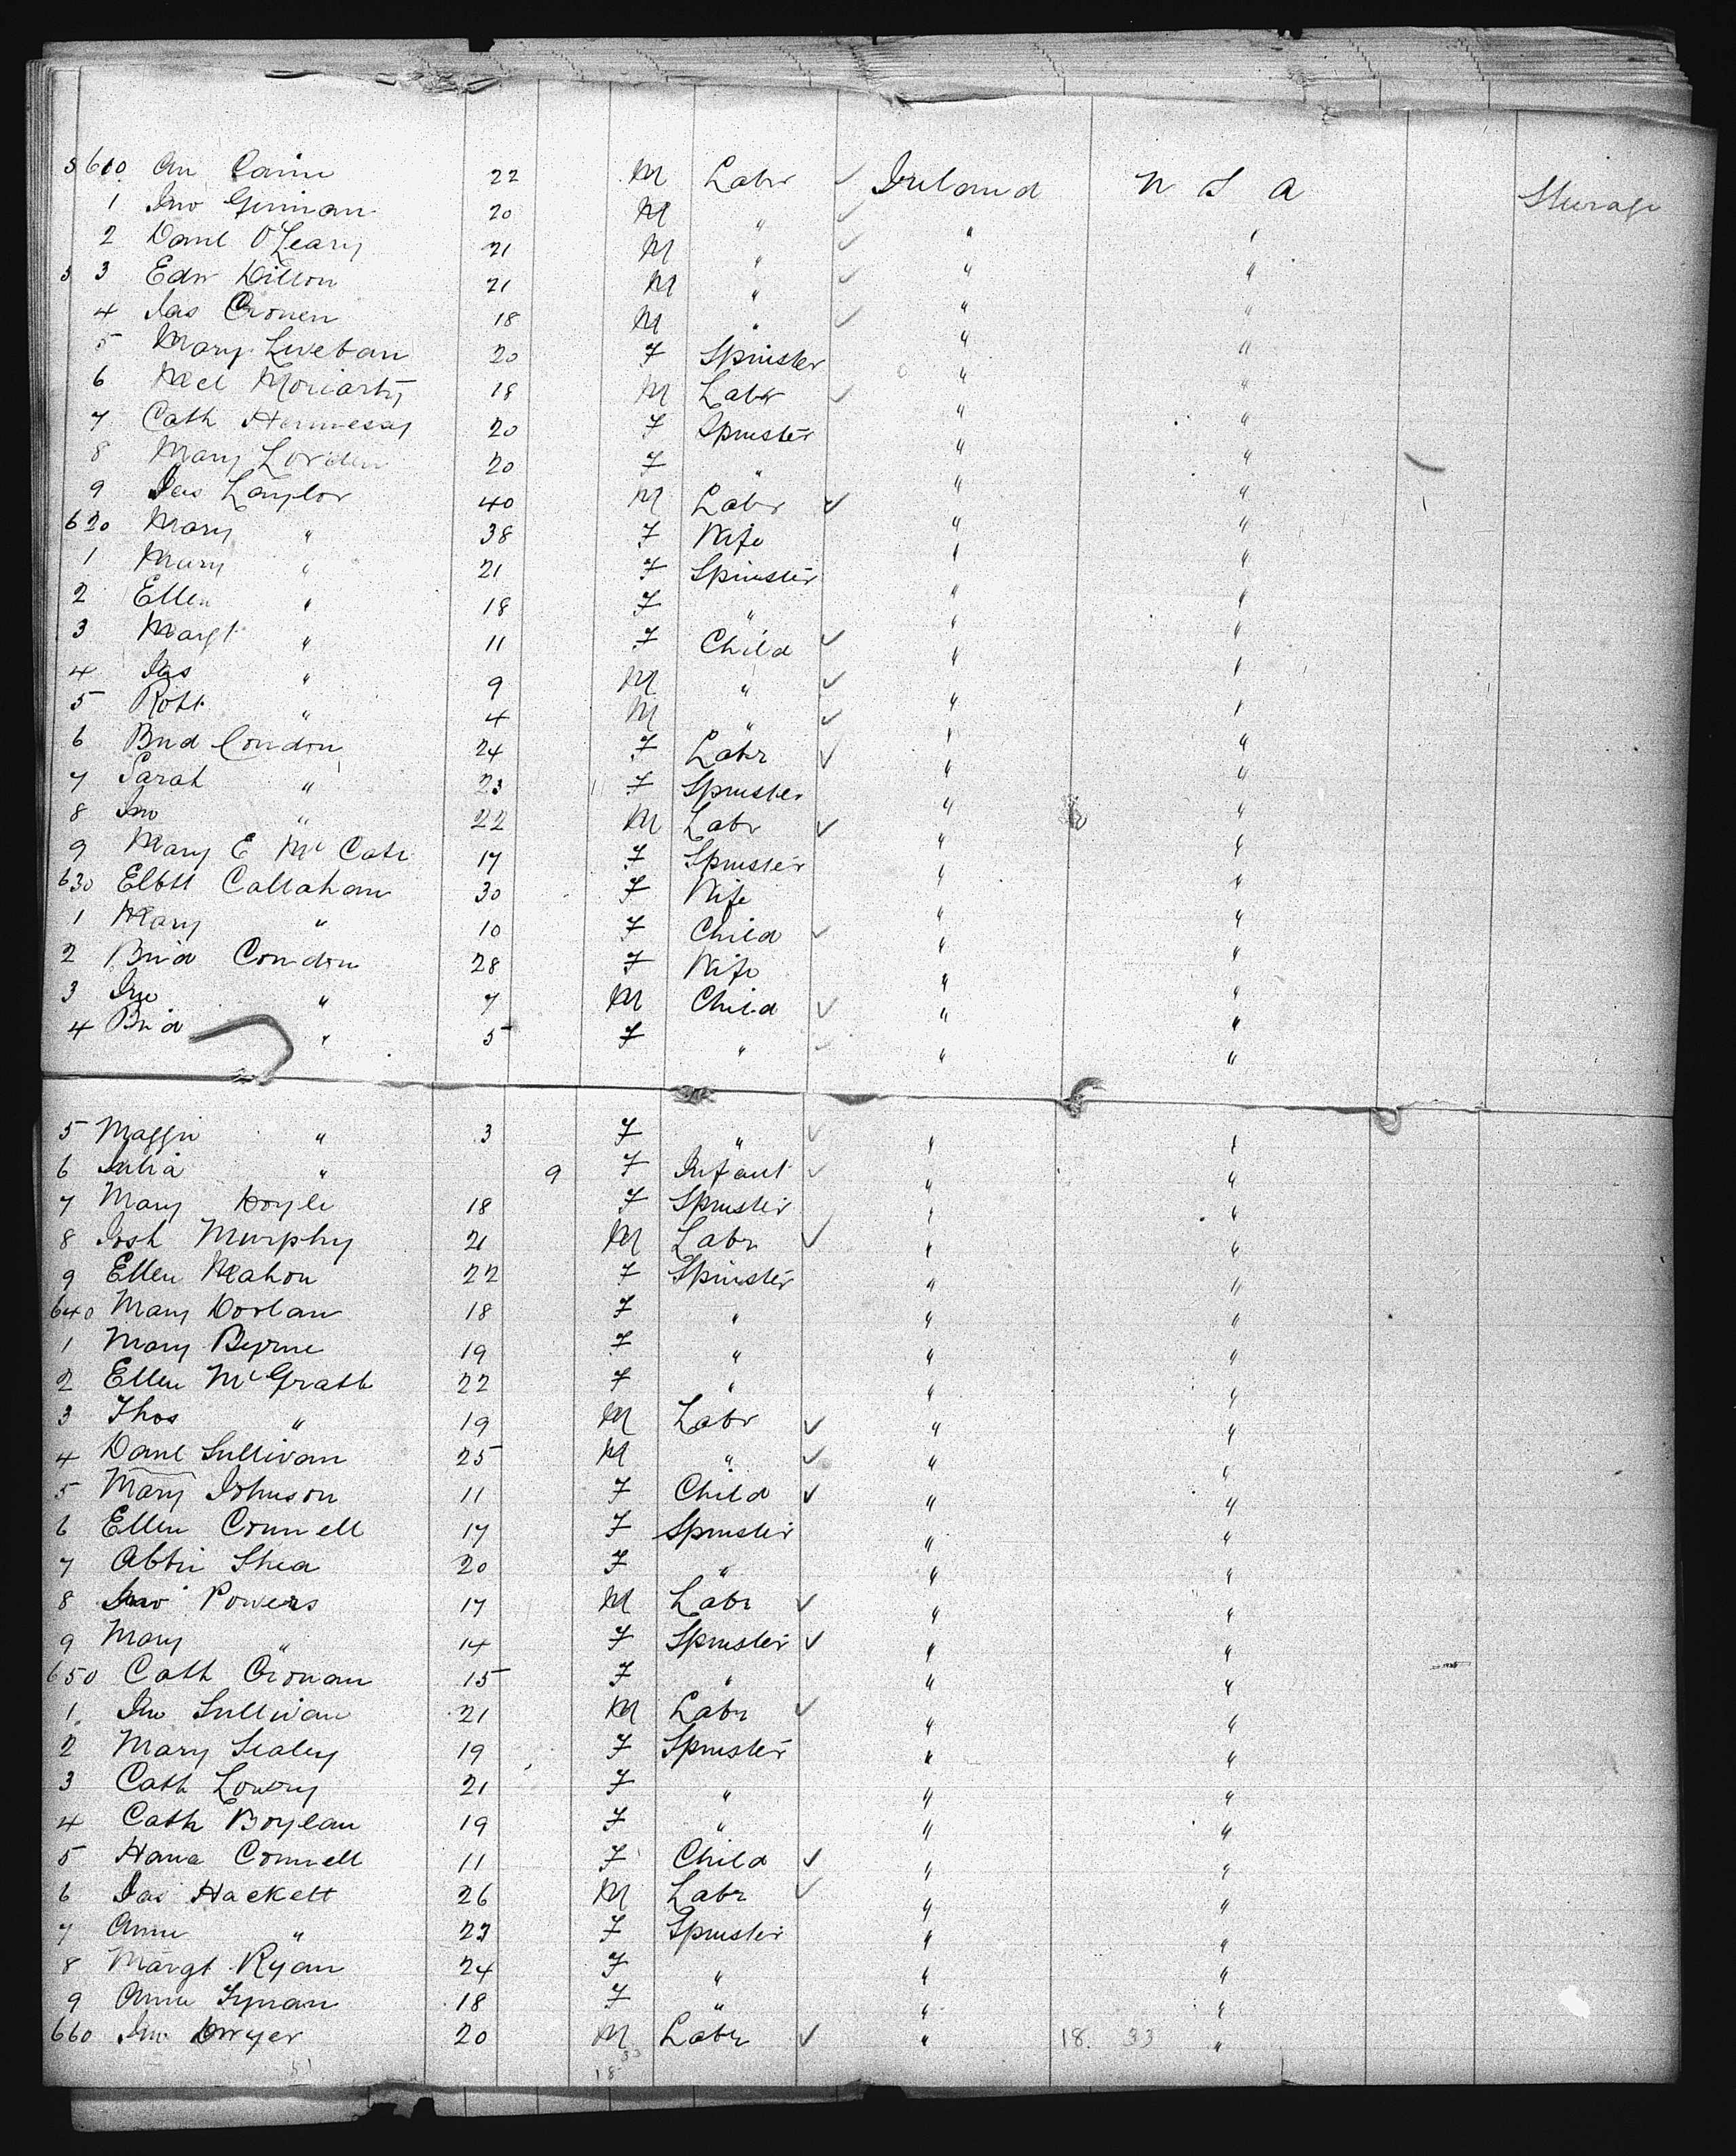 610 22 M Labr ✓ Ireland U S A Steerage
1 Jno 20 M " ✓ " "
2 Danl O'Leary 21 M " ✓ " "
3 3 Edw Dillon 21 M " ✓ " "
4 Jas Cronen 18 M " ✓ " "
5 Mary 20 F Spinster " "
6 Mcl Moriarty 18 M Labr ✓ " "
7 Cath Hennessy 20 F Spinster " "
8 Mary Lorden 20 F " " "
9 Jas Taylor 40 M Labr ✓ " "
620 Mary " 38 F Wife " "
1 Mary " 21 F Spinster " "
2 Ellen " 18 F " " "
3 Margt " 11 F Child ✓ " "
4 Jas " 9 M " ✓ " "
5 Robt " 4 M " ✓ " "
6 Brid Condon 24 F Labr ✓ " "
7 Sarah " 23 F Spinster " "
8 Jno " 22 M Labr ✓ " "
9 Mary E Mc 17 F Spinster " "
630 Elbtt Callahan 30 F Wife " "
1 Mary " 10 F Child ✓ " "
2 Brid Condon 28 F Wife " "
3 Jno " 7 M Child ✓ " "
4 Brid " 5 F " ✓ " "
5 Maggie " 3 F " ✓ " "
6 Julia " 9 F Infant ✓ " "
7 Mary Doyle 18 F Spinster " "
8 Josh Murphy 21 M Labr ✓ " "
9 Ellen Mahon 22 F Spinster " "
640 Mary Dorlan 18 F " " "
1 Mary Byrne 19 F " " "
2 Ellen McGrath 22 F " " "
3 Thos " 19 M Labr ✓ " "
4 Danl Sullivan 25 M " ✓ " "
5 Mary Johnson 11 F Child ✓ " "
6 Ellen Connell 17 F Spinster " "
7 Abbie Shea 20 F " " "
8 Jno Powers 17 M Labr ✓ " "
9 Mary " 14 F Spinster ✓ " "
650 Cath Cronan 15 F " " "
1 Jno Sullivan 21 M Labr ✓ " "
2 Mary Sealey 19 F Spinster " "
3 Cath Lowry 21 F " " "
4 Cath Boylan 19 F " " "
5 Hana Connell 11 F Child ✓ " "
6 Jas Hackett 26 M Labr ✓ " "
7 Anne " 23 F Spinster " "
8 Margt Ryan 24 F " " "
9 Anne 18 F " " "
660 Jno Dwyer 20 M Labr ✓ " 18 33 "
18 33